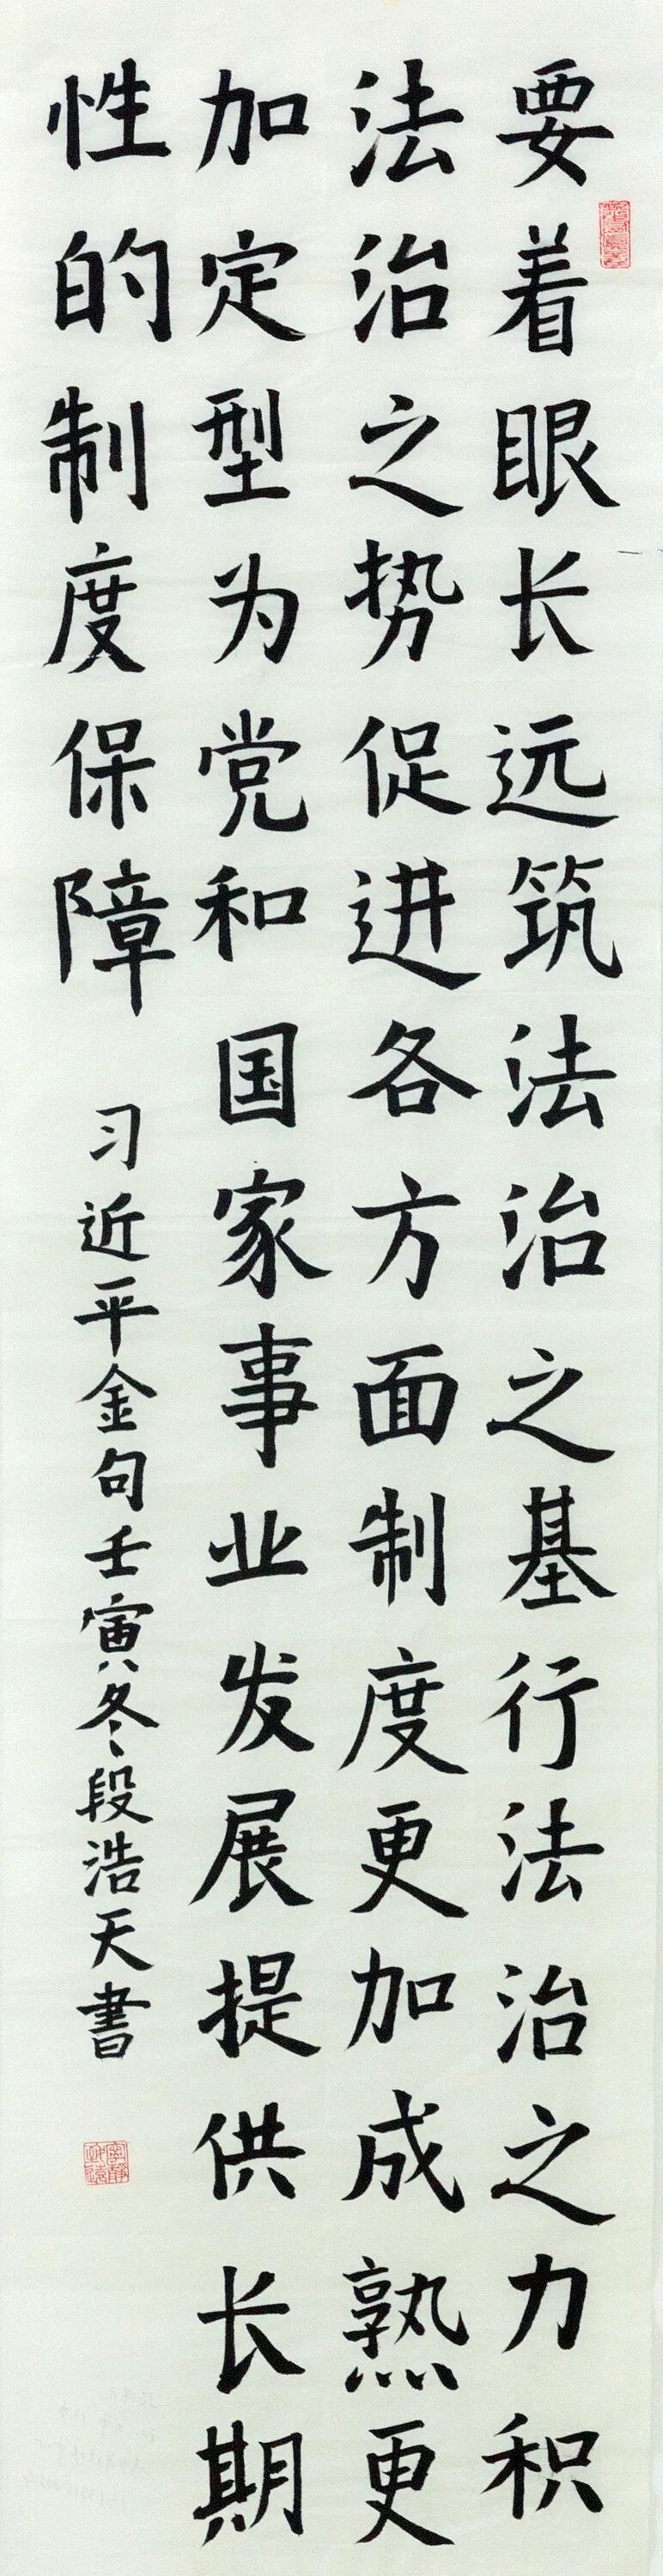 要着眼长远筑法治之基行法治之力积
法治之势促进各方面制度更加成熟更
加定型为党和国家事业发展提供长期
性的制度保障
习近平金句壬寅冬段浩天書